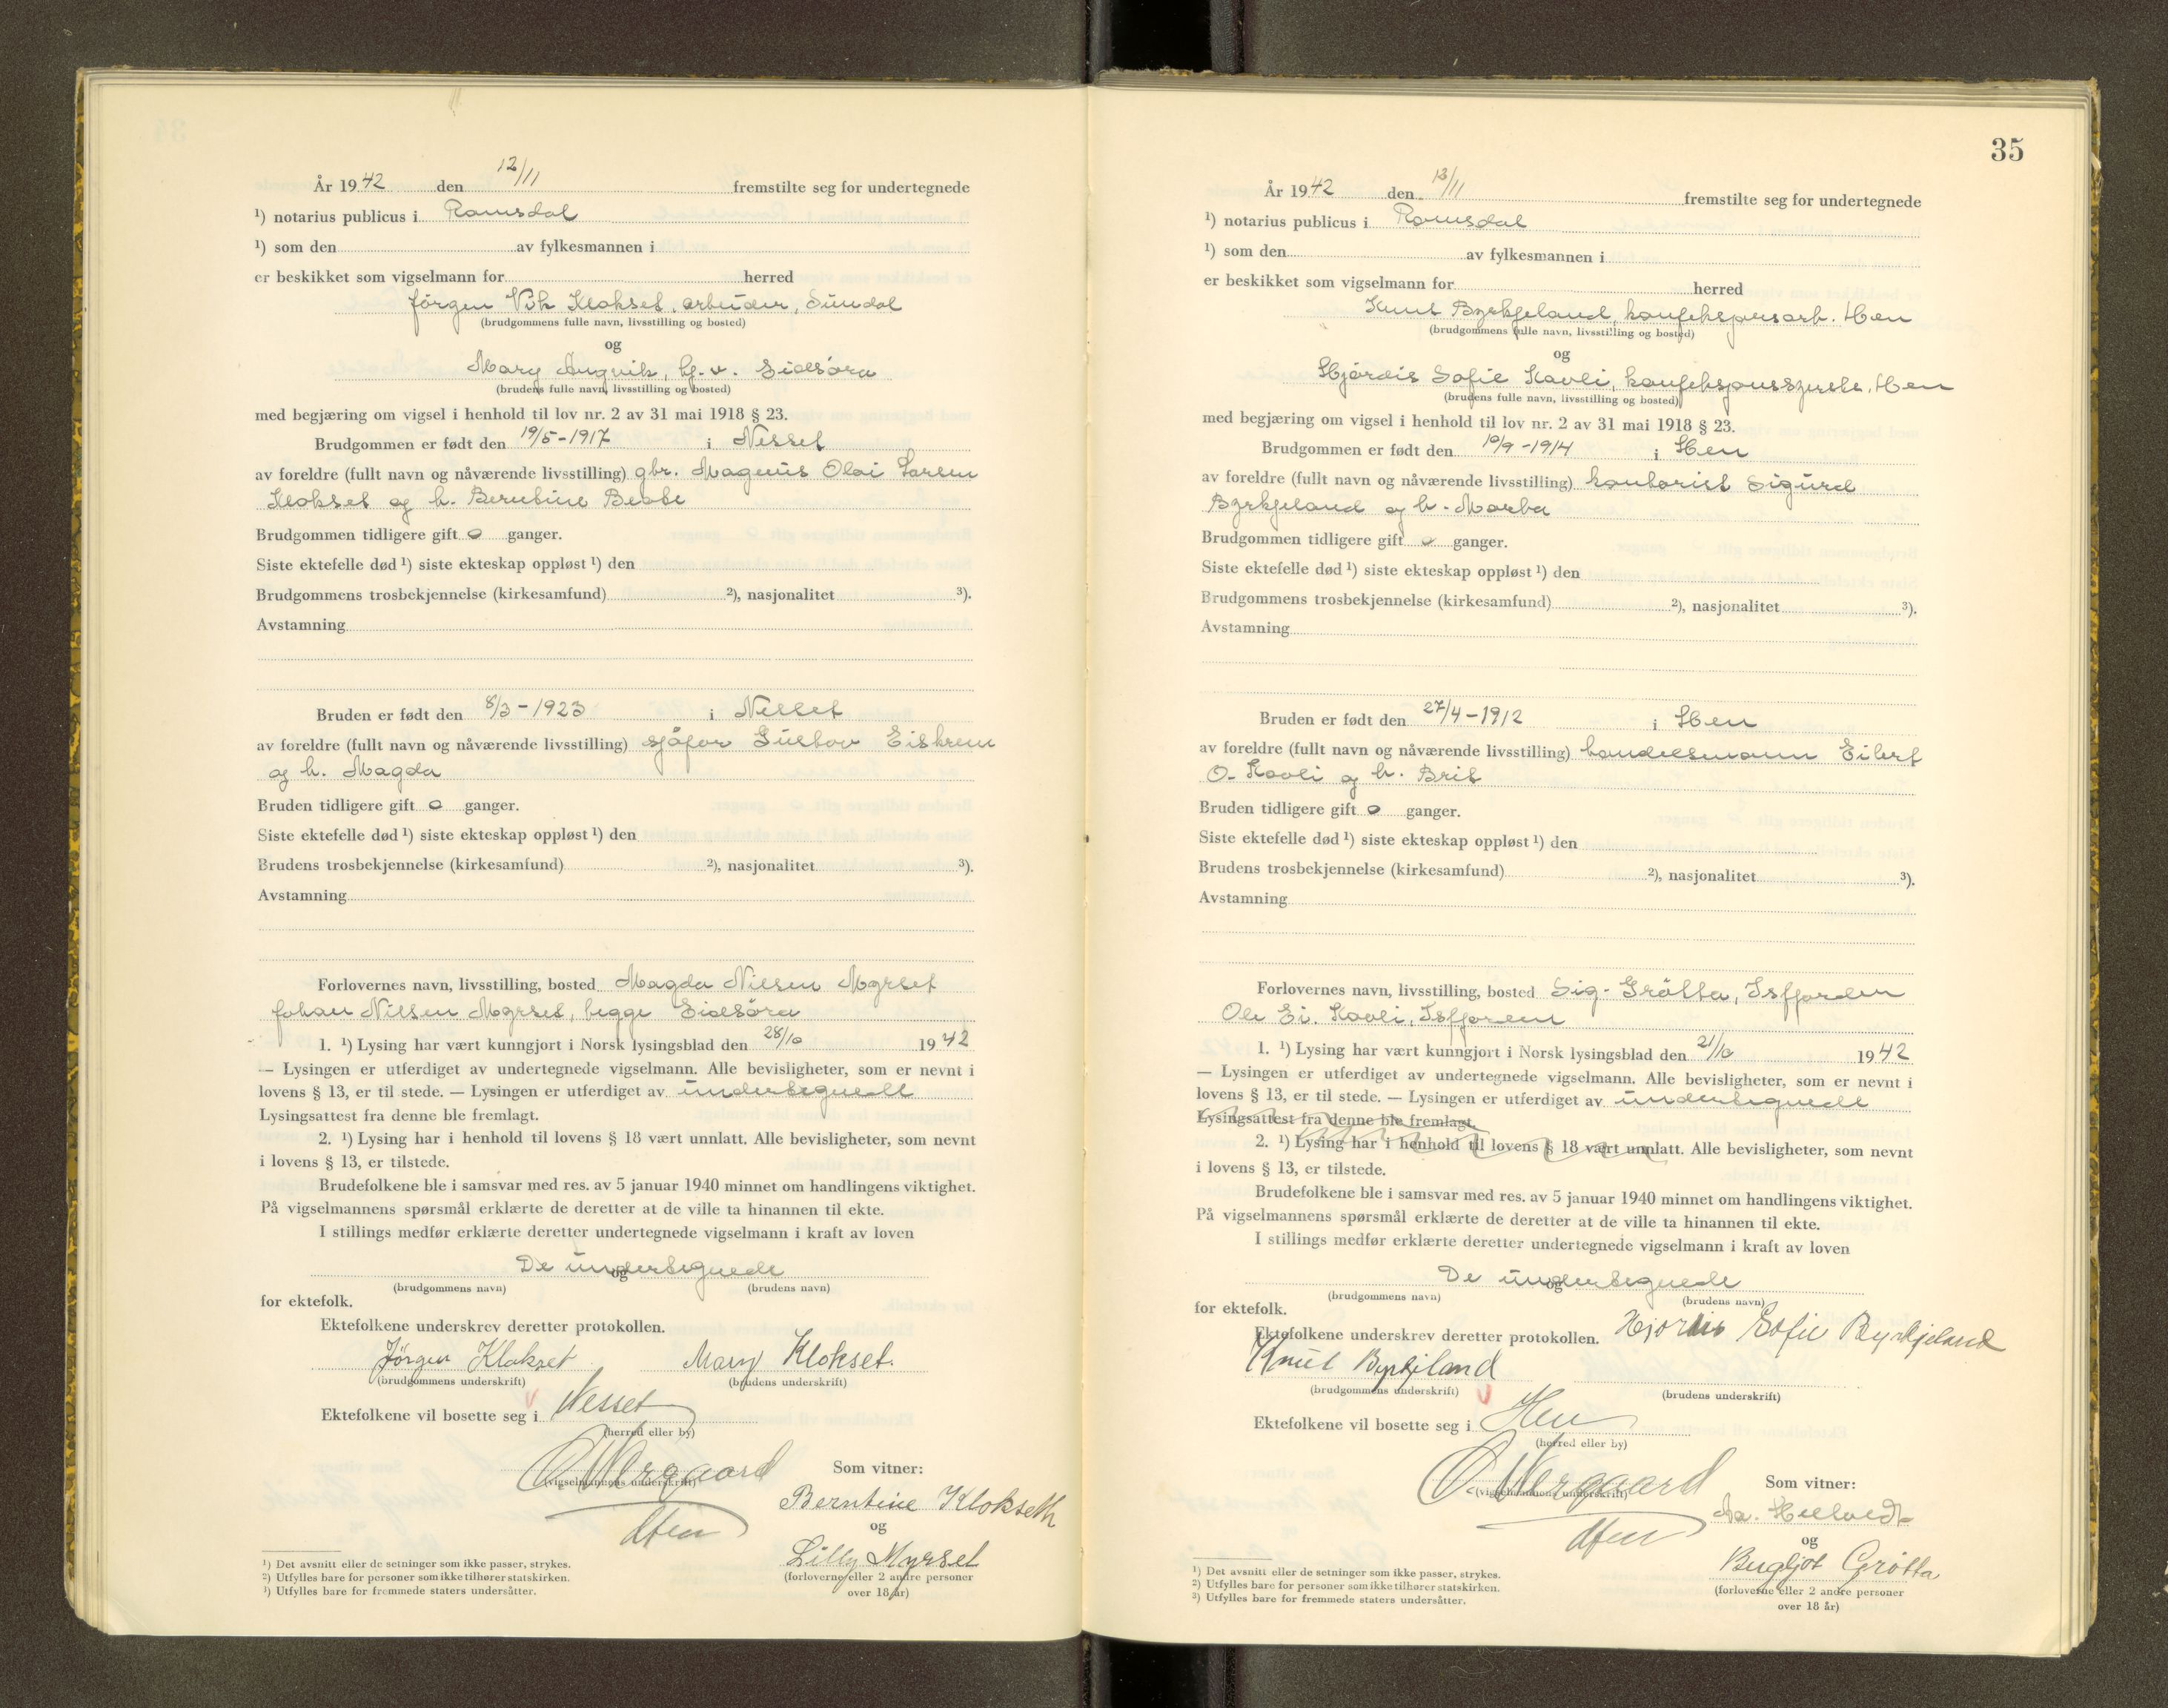 År 1942 den 12/11 fremstilte seg for undertegnede
¹) notarius publicus i Romsdal
¹) som den av fylkesmannen i
er beskikket som vigselmann for herred
Jørgen Vik Klokset, arbeider, Sunndal
(brudgommens fulle navn, livsstilling og bosted)
og
Mary Angvik, hj. v. Eidsøra
(brudens fulle navn, livsstilling og bosted)
med begjæring om vigsel i henhold til lov nr. 2 av 31 mai 1918 § 23.
Brudgommen er født den 19/5-1917 i Nesset
av foreldre (fullt navn og nåværende livsstilling) gbr. Magnus Olai Larsen
Klokset og h. Berntine Beate
Brudgommen tidligere gift 0 ganger.
Siste ektefelle død ¹) siste ekteskap oppløst ¹) den
Brudgommens trosbekjennelse (kirkesamfund) ²), nasjonalitet ³).
Avstamning
Bruden er født den 8/3-1923 i Nesset
av foreldre (fullt navn og nåværende livsstilling) sjåfør Gustav Eiskrem
og h. Magda
Bruden tidligere gift 0 ganger.
Siste ektefelle død ¹) siste ekteskap oppløst ¹) den
Brudens trosbekjennelse (kirkesamfund) ²), nasjonalitet ³).
Avstamning
Forlovernes navn, livsstilling, bosted Magda Nilsen Myrset
Johan Nilsen Myrset, begge Eidsøra
1. ¹) Lysing har vært kunngjort i Norsk lysingsblad den 28/10 1942
— Lysingen er utferdiget av undertegnede vigselmann. Alle bevisligheter, som er nevnt i
lovens § 13, er til stede. — Lysingen er utferdiget av undertegnede
Lysingsattest fra denne ble fremlagt.
2. ¹) Lysing har i henhold til lovens § 18 vært unnlatt. Alle bevisligheter, som nevnt
i lovens § 13, er tilstede.
Brudefolkene ble i samsvar med res. av 5 januar 1940 minnet om handlingens viktighet.
På vigselmannens spørsmål erklærte de deretter at de ville ta hinannen til ekte.
I stillings medfør erklærte deretter undertegnede vigselmann i kraft av loven
De undertegnede
og
(brudgommens navn) (brudens navn)
for ektefolk.
Ektefolkene underskrev deretter protokollen.
Jørgen Klokset Mary Klokset.
(brudgommens underskrift) (brudens underskrift)
Ektefolkene vil bosette seg i Nesset
(herred eller by)
Som vitner:
(vigselmannens underskrift)
Berntine Klokseth
og
Lilly Myrset
(forloverne eller 2 andre personer
over 18 år)
¹) Det avsnitt eller de setninger som ikke passer, strykes.
²) Utfylles bare for personer som ikke tilhører statskirken.
³) Utfylles bare for fremmede staters undersåtter.
35
År 1942 den 13/11 fremstilte seg for undertegnede
¹) notarius publicus i Romsdal
¹) som den av fylkesmannen i
er beskikket som vigselmann for herred
Knut Byrkjeland, konfeksjonsarb. Hen
(brudgommens fulle navn, livsstilling og bosted)
og
Hjørdis Sofie Kavli, konfeksjonssyerske, Hen
(brudens fulle navn, livsstilling og bosted)
med begjæring om vigsel i henhold til lov nr. 2 av 31 mai 1918 § 23.
Brudgommen er født den 10/9-1914 i Hen
av foreldre (fullt navn og nåværende livsstilling) kontorist Sigurd
Byrkjeland og h. Marta
Brudgommen tidligere gift 0 ganger.
Siste ektefelle død ¹) siste ekteskap oppløst ¹) den
Brudgommens trosbekjennelse (kirkesamfund) ²), nasjonalitet ³).
Avstamning
Bruden er født den 27/4-1912 i Hen
av foreldre (fullt navn og nåværende livsstilling) handelsmann Eilert
O. Kavli og h. Brit
Bruden tidligere gift 0 ganger.
Siste ektefelle død ¹) siste ekteskap oppløst ¹) den
Brudens trosbekjennelse (kirkesamfund) ²), nasjonalitet ³).
Avstamning
Forlovernes navn, livsstilling, bosted Sig. Grøtta, Isfjorden
Ole Ei. Kavli, Isfjorden
1. ¹) Lysing har vært kunngjort i Norsk lysingsblad den 21/10 1942
— Lysingen er utferdiget av undertegnede vigselmann. Alle bevisligheter, som er nevnt i
lovens § 13, er til stede. — Lysingen er utferdiget av undertegnede
Lysingsattest fra denne ble fremlagt.
2. ¹) Lysing har i henhold til lovens § 18 vært unnlatt. Alle bevisligheter, som nevnt
i lovens § 13, er tilstede.
Brudefolkene ble i samsvar med res. av 5 januar 1940 minnet om handlingens viktighet.
På vigselmannens spørsmål erklærte de deretter at de ville ta hinannen til ekte.
I stillings medfør erklærte deretter undertegnede vigselmann i kraft av loven
De undertegnede
og
(brudgommens navn) (brudens navn)
for ektefolk.
Ektefolkene underskrev deretter protokollen. Hjørdis Sofie Byrkjeland
Knut Byrkjeland
(brudgommens underskrift) (brudens underskrift)
Ektefolkene vil bosette seg i Hen
(herred eller by)
Som vitner:
(vigselmannens underskrift)
og
Bergljot Grøtta
(forloverne eller 2 andre personer
over 18 år)
¹) Det avsnitt eller de setninger som ikke passer, strykes.
²) Utfylles bare for personer som ikke tilhører statskirken.
³) Utfylles bare for fremmede staters undersåtter.